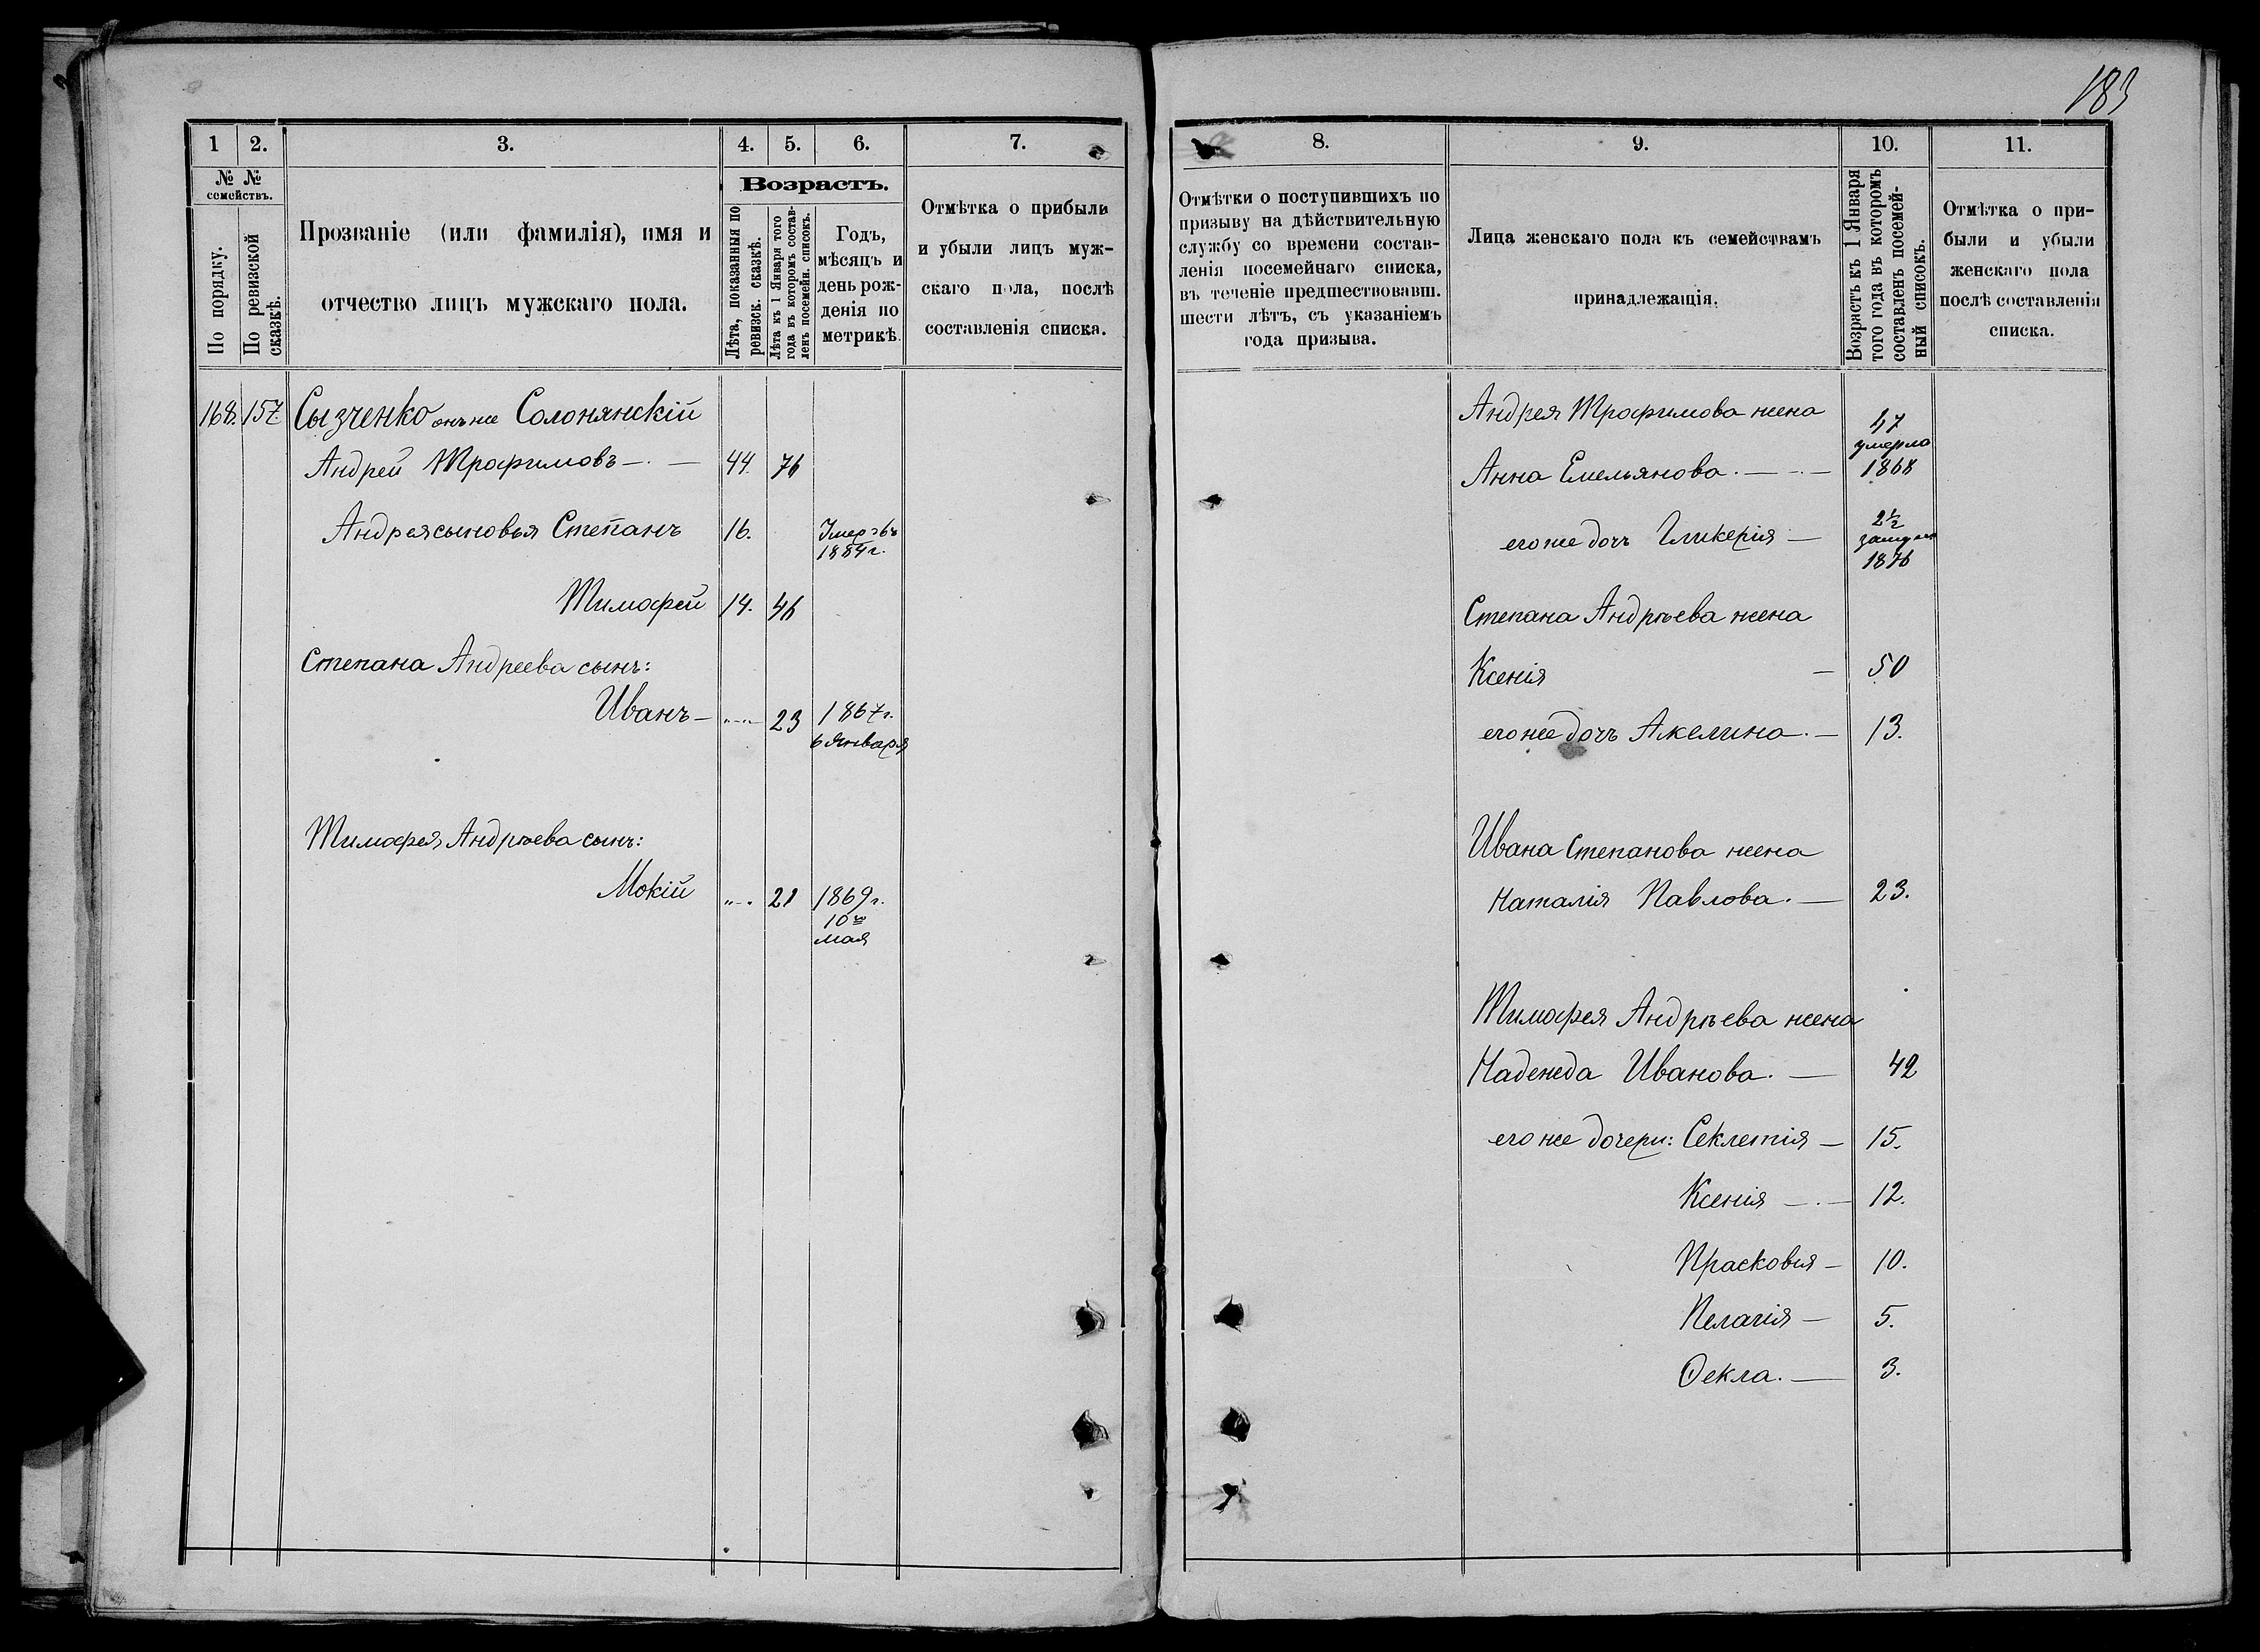 183
1 2. 3. 4. 5. 6. 7.
№ №
семействъ.
По порядку.
По ревизской сказкѣ.
Прозваніе (или фамилія), имя и
отчество лицъ мужскаго пола.
Возрастъ.
Лѣта, показанныя по ревизск. сказкѣ.
Лѣта къ 1 Января того года въ которомъ составленъ посемейн. списокъ.
Годъ,
мѣсяцъ и
день рож-
денія по
метрикѣ.
Отмѣтка о прибыли
и убыли лицъ муж-
скаго пола, послѣ
составленія списка.
168. 157. Сызченко онъ же Солонянскій
Андрей Трофимовъ —.— 44. 76
Андрея сыновья Степанъ 16. Умеръ въ
1884 г.
Тимофей 14. 46
Степана Андреева сынъ:
Иванъ — „—„— 23 1867 г.
6 Января
Тимофея Андрѣева сынъ:
Мокій „—„ 21 1869 г.
10го
мая
8. 9. 10. 11.
Отмѣтки о поступившихъ по
призыву на дѣйствительную
службу со времени состав-
ленія посемейнаго списка,
въ теченіе предшествовавш.
шести лѣтъ, съ указаніемъ
года призыва.
Лица женскаго пола къ семействамъ
принадлежащія.
Возрастъ къ 1 Января
того года въ которомъ
составленъ посемей-
ный списокъ.
Отмѣтка о при-
были и убыли
женскаго пола
послѣ составленія
списка.
Андрея Трофимова жена
47
Анна Емельянова. —.— умерла
1868
его же дочь Гликерія — 2½
замуж
1876
Степана Андрѣева жена
Ксенія — 50
его же дочь Акелина. — 13.
Ивана Степанова жена
Наталія Павлова. — 23.
Тимофея Андрѣева жена
Надежда Иванова. — 42
его же дочери: Секлетія — 15.
Ксенія —.— 12.
Прасковья — 10.
Пелагія — 5.
Ѳекла. — 3.